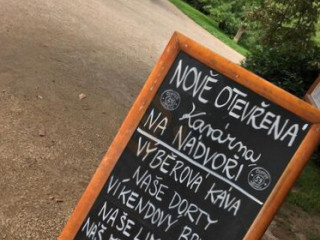 NOVĚ OTEVŘENÁ
Kavárna
NA NÁDVOŘÍ
VÝBĚROVÁ KÁVA
NAŠE DORTY
VÍKENDOVÝ
NAŠE
NAŠ